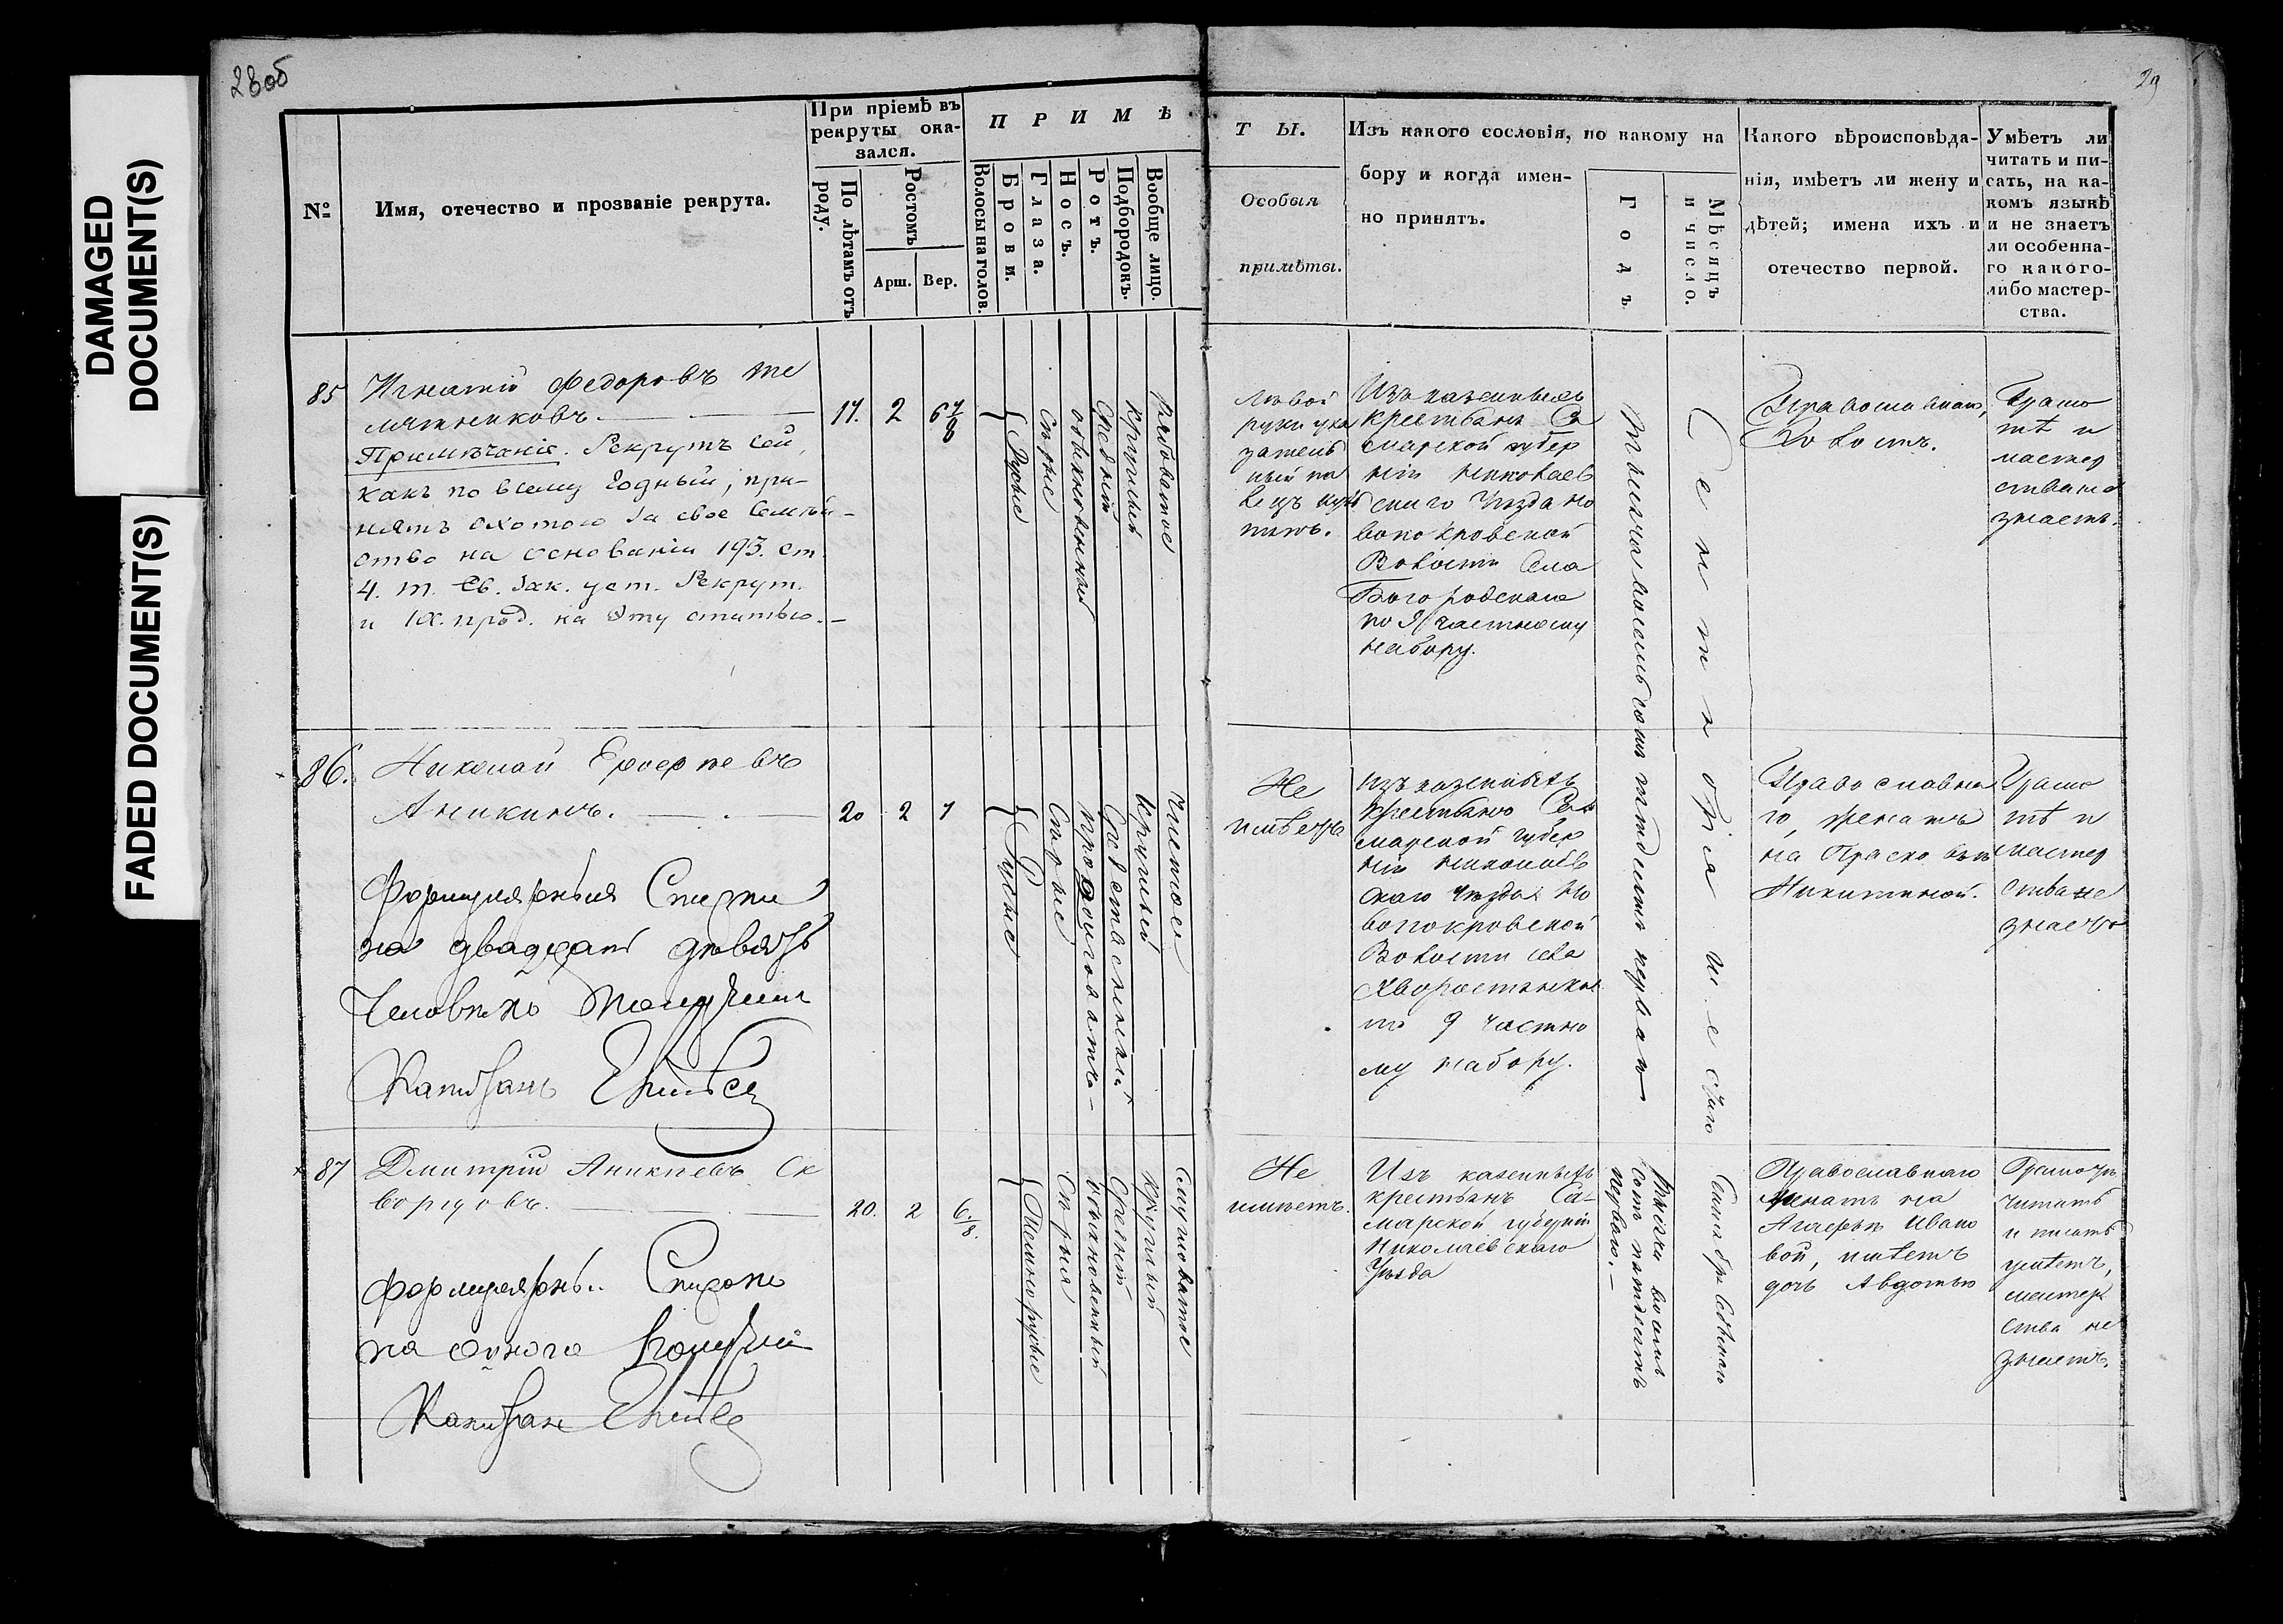 DAMAGED
DOCUMENT(S)
FADED DOCUMENT(S)
28об
29
№
Имя, отечество и прозваніе рекрута.
При пріемѣ въ
рекруты ока-
зался.
По лѣтамъ отъ
роду.
Ростомъ
Арш.
Вер.
ПРИМѢ
Волосы на голов.
Брови.
Глаза.
Носъ.
Ротъ.
Подбородокъ.
Вообще лицо.
ТЫ.
Особыя
примѣты.
Изъ какого сословія, по какому на
бору и когда имен-
но принятъ.
Годъ
Мѣсяцъ
и число.
Какого вѣроисповѣда-
нія, имѣетъ ли жену и
дѣтей; имена ихъ и
отечество первой.
Умѣетъ ли
читать и пи-
сать, на ка-
комъ языкѣ
и не знаетъ
ли особенна-
го какого-
либо мастер-
ства.
85
Игнатій Федоровъ Те
лятниковъ.
Примѣчаніе. Рекрутъ сей,
какъ по всему годный, при-
нятъ охотою за свое семѣй-
ство на основаніи 193. ст.
4. т. Св. Зак. уст. Рекрут.
и IX. прод. на эту статью.
17.
2
6 7/8
Русые
Сѣрые
обыкновенный
Средній
Круглый
Рябоватое
Лѣвой
руки ука
затель
ный па
лецъ
Изъ казенныхъ
крестьянъ Са
марской губер
ніи Николаев
скаго Уѣзда Но
вопокровской
Волости Села
Богородскаго
по 9 частному
набору.
Тысяча восемьсотъ пятдесятъ перваго
Сентября
Православнаго,
Холостъ.
Грамо
тѣ и
мастер
ства не
знаетъ.
86.
Николай Ерофеевъ
Аникинъ.
20
2
7
Русые
Сѣрые
продолговатый
Средственный
Круглый
Чистое
Не
имѣетъ
Изъ казенныхъ
крестьянъ Са
марской губер
ніи Николаев
скаго Уѣзда Но
вопокровской
Волости села
Хворостянки
по 9 частно
му набору.
Православна
го, женатъ
на Прасковьѣ
Никитиной.
Грамо
тѣ и
мастер
ства не
знаетъ
Формулярныя Списки
на двадцать девять
Человѣкъ Получилъ
Капитанъ
87
Дмитрій Аникіевъ Ск
ворцовъ.
20.
2
6/8.
Темнорусые
Сѣрыя
обыкновенный
Средній
Круглый
Смугловатое
Не
имѣетъ.
Изъ казенныхъ
крестьянъ Са-
марской губерніи
Николаевскаго
Уѣзда
Тысяча восемь
сотъ пятдесятъ
перваго.
Сентября седьмаго
Православнаго
женатъ на
Агафьѣ Ивано
вой, имѣетъ
дочь Авдотью
Грамотѣ
читать
и писать
умѣетъ,
мастер
ства не
знаетъ.
Формулярный Списокъ
на одного Получилъ
Капитанъ